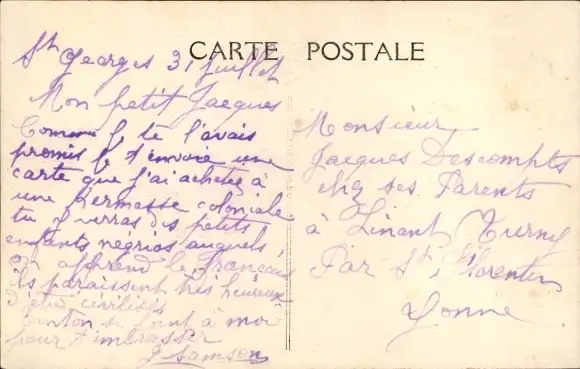 CARTE POSTALE
St Georges 31 juillet
Mon petit Jacques
Comme je te l'avais
promis je t'envoie une
carte que j'ai achetez à
une Kermesse coloniale
tu y verras des petits
enfants negrios auquels
on apprend le Français
ils paraissent très heureux
d'être civilisés
Tonton se joint à moi
pour t'embrasser
J Samson
Monsieur
Jacques Descompts
chez ses Parents
à Linant Turny
Par St Florentin
Yonne